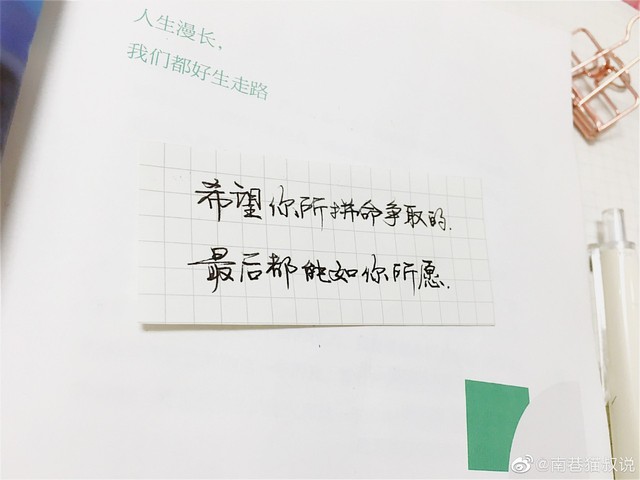 人生漫长，
我们都好生走路
希望你所拼命争取的.
最后都能如你所愿.
@南巷猫叔说